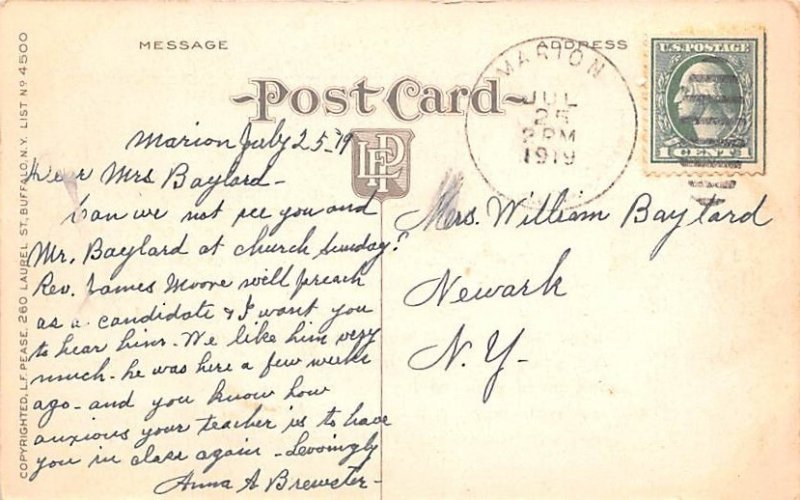 MESSAGE
ADDRESS
Post Card
LFP
COPYRIGHTED, L.F. PEASE, 260 LAUREL ST., BUFFALO, N.Y. LIST Nº 4500
MARION
JUL
25
2 PM
1919
U.S. POSTAGE
1 CENT 1
Marion July 25-'19
Dear Mrs Baylard-
Can we not see you and
Mr. Baylard at church Sunday?
Rev. James Moore will preach
as a candidate & I want you
to hear him. We like him very
much. he was here a few weeks
ago - and you know how
anxious your teacher is to have
you in class again - Lovingly
Anna A Brewster-
Mrs. William Baylard
Newark
N.Y-